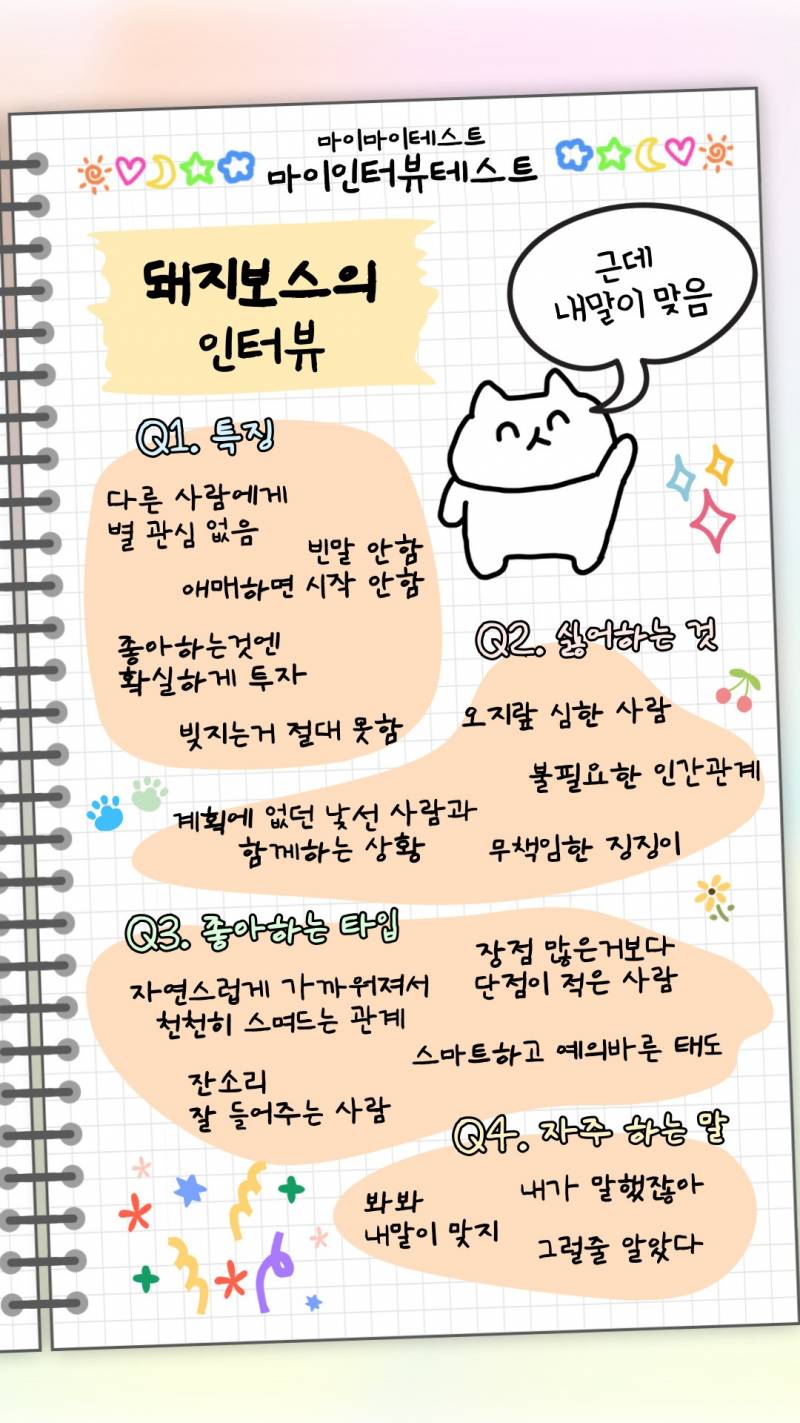 마이마이테스트
마이인터뷰테스트
돼지보스의
인터뷰
근데
내말이 맞음
Q1. 특징
다른 사람에게
별 관심 없음
빈말 안함
애매하면 시작 안함
좋아하는것엔
확실하게 투자
빚지는거 절대 못함
Q2. 싫어하는 것
오지랖 심한 사람
불필요한 인간관계
계획에 없던 낯선 사람과
함께하는 상황
무책임한 징징이
Q3. 좋아하는 타입
장점 많은거보다
단점이 적은 사람
자연스럽게 가까워져서
천천히 스며드는 관계
스마트하고 예의바른 태도
잔소리
잘 들어주는 사람
Q4. 자주 하는 말
봐봐
내말이 맞지
내가 말했잖아
그럴줄 알았다